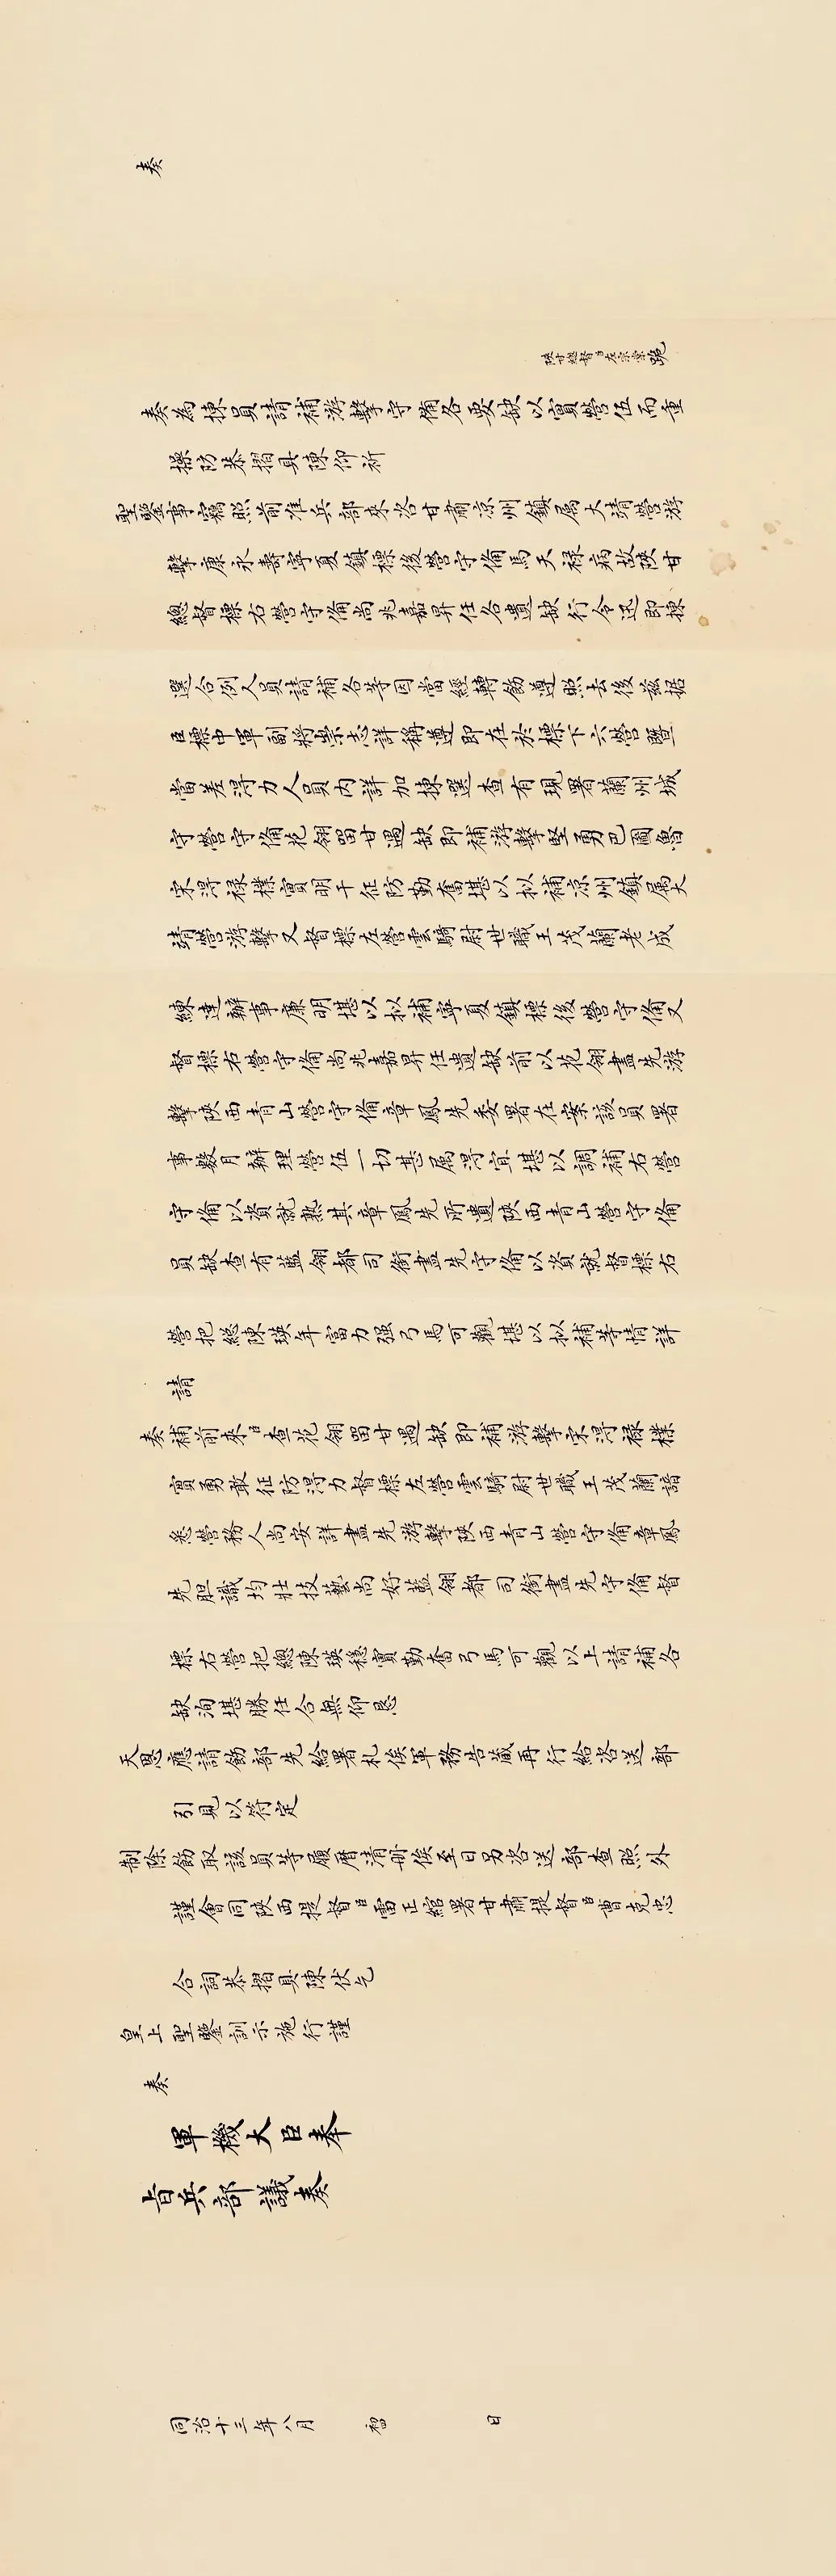 奏
陝甘總督臣左宗棠跪
奏為揀員請補游擊守備各要缺以實營伍而重
操防恭摺具陳仰祈
聖鑒事竊照前准兵部來咨甘肅涼州鎮属大靖營游
擊康永壽寧夏鎮標後營守備馬天祿病故陝甘
總督標右營守備尚兆嘉昇任各遺缺行令迅即揀
選合例人員請補各等因當經轉飭遵照去後茲据
臣標中軍副將崇志詳稱遵即在於標下六營暨
當差得力人員內詳加揀選查有現署蘭州城
守營守備花翎留甘遇缺即補游擊堅勇巴圖魯
宋得祿樸實明干征防勤奮堪以拟補涼州鎮属大
靖營游擊又督標左營雲騎尉世職王茂蘭老成
練達辦事廉明堪以拟補寧夏鎮標後營守備又
督標右營守備尚兆嘉昇任遺缺前以花翎盡先游
擊陝西青山營守備章鳳先委署在案該員署
事數月辦理營伍一切甚属得宜堪以調補右營
守備以資就熟其章鳳先所遺陝西青山營守備
員缺查有藍翎都司銜盡先守備以資就督標右
營把総陳瑛年富力强弓馬可觀堪以拟補等情詳
請
奏補前來臣查花翎留甘遇缺即補游擊宋得祿樸
實勇敢征防得力督標左營雲騎尉世職王茂蘭諳
悉營務人尚安詳盡先游擊陝西青山營守備章鳳
先胆識均壯技藝尚好藍翎都司銜盡先守備督
標右營把總陳瑛穩實勤奮弓馬可觀以上請補各
缺洵堪勝任合無仰恳
天恩應請飭部先給署札俟軍務告蕆再行給咨送部
引見以符定
制除飭取該員等履歷清册俟至日另咨送部查照外
謹會同陝西提督臣雷正綰署甘肅提督臣曹克忠
合詞恭摺具陳伏乞
皇上聖鑒訓示施行謹
奏
軍機大臣奉
旨兵部議奏
同治十三年八月 初四 日